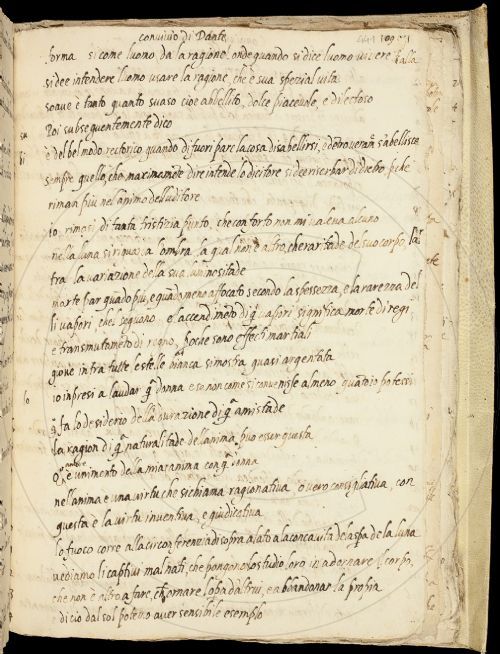 convivio di Dante
forma si come l uomo da la ragione. onde quando si dice luomo vivere
si dee intendere luomo usare la ragione, che è sua spezial vita
soave è tanto quanto suaso cioè abbellito, dolce piacevole, e dilettoso
Poi subsequentemente dico
è del bel modo rectorico, quando di fuori pare la cosa disabellirsi, e dentro s'abellisce
sempre quello, che maximamente dire intende lo dicitore si dee riserbar di dietro, pche
riman piu nel animo delluditore
io rimasi di tanta tristizia punto, che conforto non mi valeva alcuno
nella luna si l'ombra, la qual non è altro, che raritade de suo corpo,
tra la variazione dela sua luminositade
marte par quado piu, e quado meno affocato secondo la spessezza, e la rarezza de
li vapori, che seguono. e laccendimeto di q vapori significa morte di regi
e transmutameto di regno, poche sono effecti martiali
giove intra tutte le stelle bianca si mostra quasi argentata
io impresi a laudar q donna e se non come si convenisse almeno quanto io potessi
fa lo desiderio della durazione di q amistade
la ragion di q naturalitade dellanima puo esser questa
amore è unimento della mia anima con q donna
nellanima è una virtu che si chiama ragionativa o vero consiliativa, con
questa è la virtu inventiva, e giudicativa
lo fuoco corre alla circonferenzia di sopra alato a la conca vita de la spa de la luna
vediamo li captivi malnati, che pongono lo studio loro in adornare l corpo.
che non è altro a fare, ch ornare lopa daltrui, e abandonar la propia
e di cio dal sol potemo aver sensibile esemplo